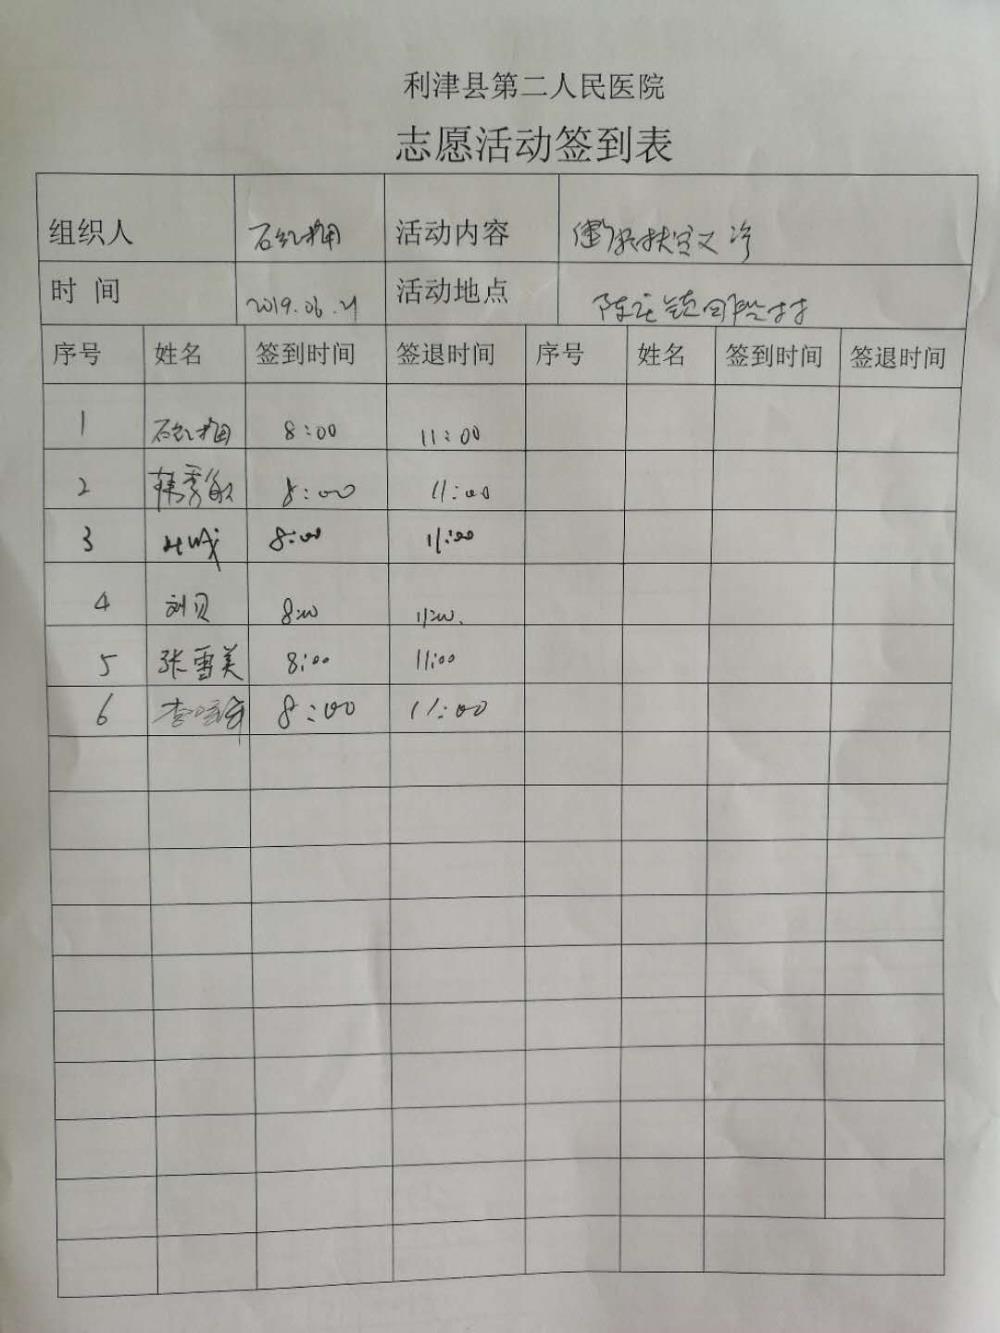 利津县第二人民医院
志愿活动签到表
组织人 活动内容
时 间 2019.06.21 活动地点
序号 姓名 签到时间 签退时间 序号 姓名 签到时间 签退时间
1 8:00 11:00
2 韩秀敏 8:00 11:00
3 8:00 11:00
4 刘贝 8:00 11:00.
5 张雪美 8:00 11:00
6 8:00 11:00